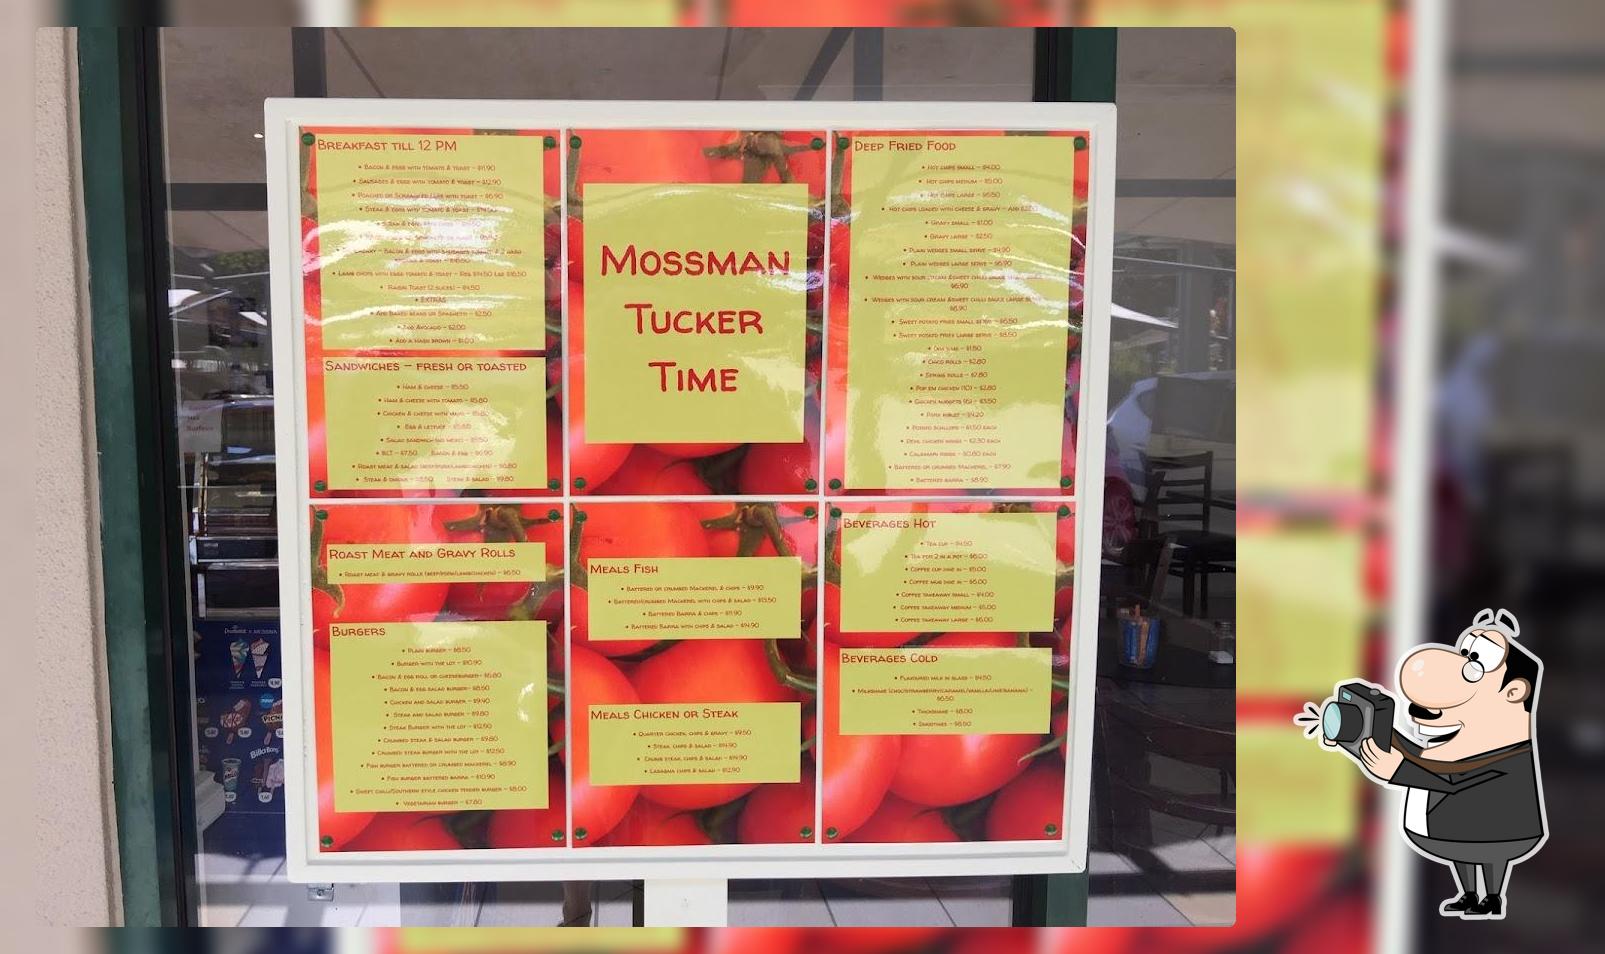 BREAKFAST TILL 12 PM
• BACON & EGGS WITH TOMATO & TOAST – $11.90
• SAUSAGES & EGGS WITH TOMATO & TOAST – $12.90
• POACHED OR SCRAMBLED EGGS WITH TOAST – $6.90
• STEAK & EGGS WITH TOMATO & TOAST –
• LAMB CHOPS WITH EGGS TOMATO & TOAST – REG $14.50 LGE $16.50
• RAISIN TOAST (2 SLICES) – $4.50
• EXTRAS
• ADD BAKED BEANS OR SPAGHETTI – $2.50
• ADD AVOCADO – $2.00
• ADD A HASH BROWN – $1.00
SANDWICHES – FRESH OR TOASTED
• HAM & CHEESE – $5.50
• HAM & CHEESE WITH TOMATO – $5.80
• CHICKEN & CHEESE WITH MAYO – $5.80
• EGG & LETTUCE –
• SALAD SANDWICH (NO MEAT) – $5.50
• BLT – $7.50 BACON & EGG – $6.90
• ROAST MEAT & SALAD (BEEF/PORK/LAMB/CHICKEN) – $6.80
• STEAK & ONIONS – STEAK & SALAD – $9.80
MOSSMAN
TUCKER
TIME
DEEP FRIED FOOD
• HOT CHIPS SMALL – $4.00
• HOT CHIPS MEDIUM – $5.00
• HOT CHIPS LARGE – $6.50
• HOT CHIPS LOADED WITH CHEESE & GRAVY – ADD
• GRAVY SMALL – $1.00
• GRAVY LARGE – $2.50
• PLAIN WEDGES SMALL SERVE – $4.90
• PLAIN WEDGES LARGE SERVE – $6.90
• WEDGES WITH SOUR CREAM & SWEET CHILLI SAUCE
$6.90
• WEDGES WITH SOUR CREAM & SWEET CHILLI SAUCE LARGE
$8.90
• SWEET POTATO FRIES SMALL SERVE – $6.50
• SWEET POTATO FRIES LARGE SERVE – $8.50
• DIM SIMS – $1.50
• CHICO ROLLS – $2.80
• SPRING ROLLS – $2.80
• POP EM CHICKEN (10) – $2.80
• CHICKEN NUGGETS (6) – $3.50
• PORK RIBLET – $4.20
• POTATO SCALLOPS – $1.50 EACH
• DEVIL CHICKEN WINGS – $2.30 EACH
• CALAMARI RINGS – $0.80 EACH
• BATTERED OR CRUMBED MACKEREL – $7.90
• BATTERED BARRA – $8.90
ROAST MEAT AND GRAVY ROLLS
• ROAST MEAT & GRAVY ROLLS (BEEF/PORK/LAMB/CHICKEN) – $6.50
BURGERS
• PLAIN BURGER – $8.50
• BURGER WITH THE LOT – $10.90
• BACON & EGG ROLL OR CHEESEBURGER – $6.80
• BACON & EGG SALAD BURGER – $8.50
• CHICKEN AND SALAD BURGER – $9.40
• STEAK AND SALAD BURGER – $9.80
• STEAK BURGER WITH THE LOT – $12.50
• CRUMBED STEAK & SALAD BURGER – $9.80
• CRUMBED STEAK BURGER WITH THE LOT – $12.50
• FISH BURGER BATTERED OR CRUMBED MACKEREL – $8.90
• FISH BURGER BATTERED BARRA – $10.90
• SWEET CHILLI/SOUTHERN STYLE CHICKEN TENDER BURGER – $8.00
• VEGETARIAN BURGER – $7.80
MEALS FISH
• BATTERED OR CRUMBED MACKEREL & CHIPS – $9.90
• BATTERED/CRUMBED MACKEREL WITH CHIPS & SALAD – $13.50
• BATTERED BARRA & CHIPS – $11.90
• BATTERED BARRA WITH CHIPS & SALAD – $14.90
MEALS CHICKEN OR STEAK
• QUARTER CHICKEN, CHIPS & GRAVY – $9.50
• STEAK, CHIPS & SALAD – $14.90
• CRUMB STEAK, CHIPS & SALAD – $14.90
• LASAGNA CHIPS & SALAD – $12.90
BEVERAGES HOT
• TEA CUP – $4.50
• TEA FOR 2 IN A POT – $6.00
• COFFEE CUP DINE IN – $5.00
• COFFEE MUG DINE IN – $6.00
• COFFEE TAKEAWAY SMALL – $4.00
• COFFEE TAKEAWAY MEDIUM – $5.00
• COFFEE TAKEAWAY LARGE – $6.00
BEVERAGES COLD
• FLAVOURED MILK IN GLASS – $4.50
• MILKSHAKE (CHOC/STRAWBERRY/CARAMEL/VANILLA/LIME/BANANA) –
$6.50
• THICKSHAKE – $8.00
• SMOOTHIES – $8.50